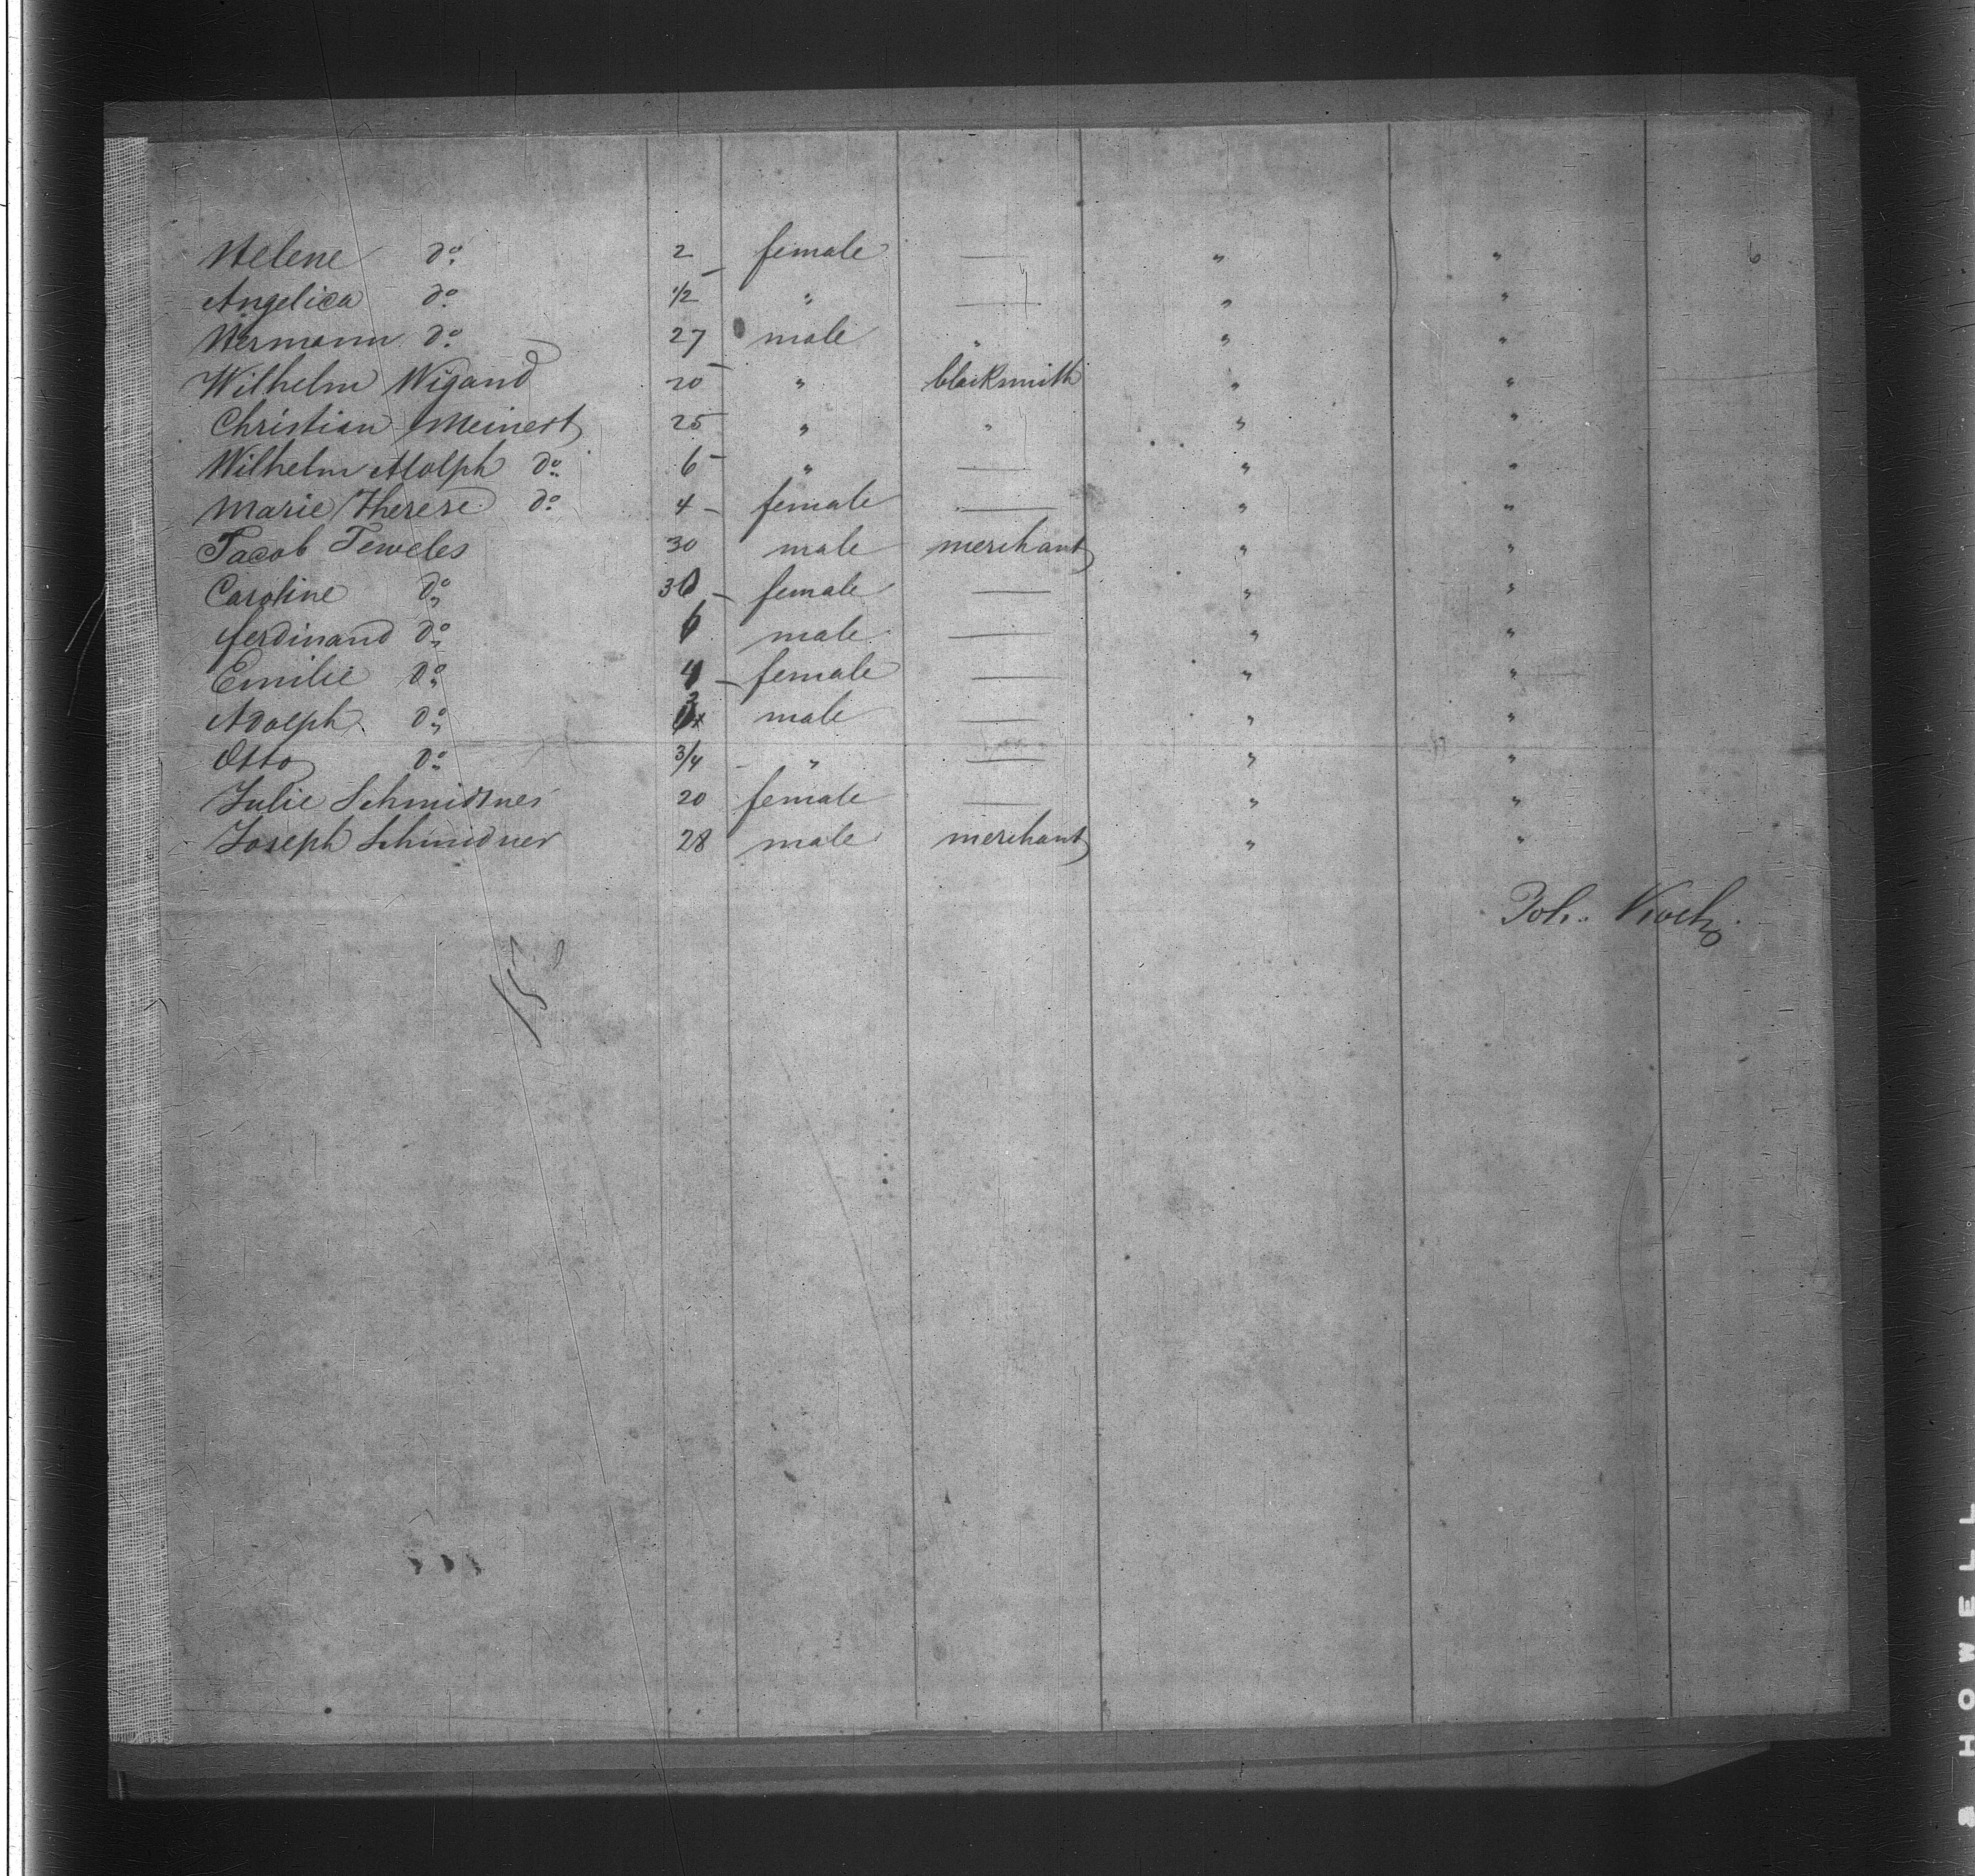 Helene do 2 female — " " 6
Angelica do 1/2 " — " "
Hermann do 27 male " " "
Wilhelm Wigand 20 " blacksmith " "
Christian Meinert 25 " " " "
Wilhelm Adolph do 6 " — " "
Marie Therese do 4 female — " "
Jacob Teweles 30 male merchant " "
Caroline do 30 female — " "
Ferdinand do 6 male — " "
Emilie do 4 female — " "
Adolph do male — " "
Otto do 3/4 " — " "
Julie Schmidtner 20 female — " "
Joseph Schmidner 28 male merchant " "
Joh. Koch
15
& HOWELL